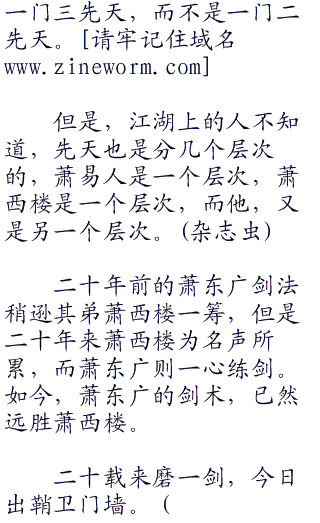 一门三先天，而不是一门二
先天。[请牢记住域名
www.zineworm.com]
但是，江湖上的人不知
道，先天也是分几个层次
的，萧易人是一个层次，萧
西楼是一个层次，而他，又
是另一个层次。(杂志虫)
二十年前的萧东广剑法
稍逊其弟萧西楼一筹，但是
二十年来萧西楼为名声所
累，而萧东广则一心练剑。
如今，萧东广的剑术，已然
远胜萧西楼。
二十载来磨一剑，今日
出鞘卫门墙。（